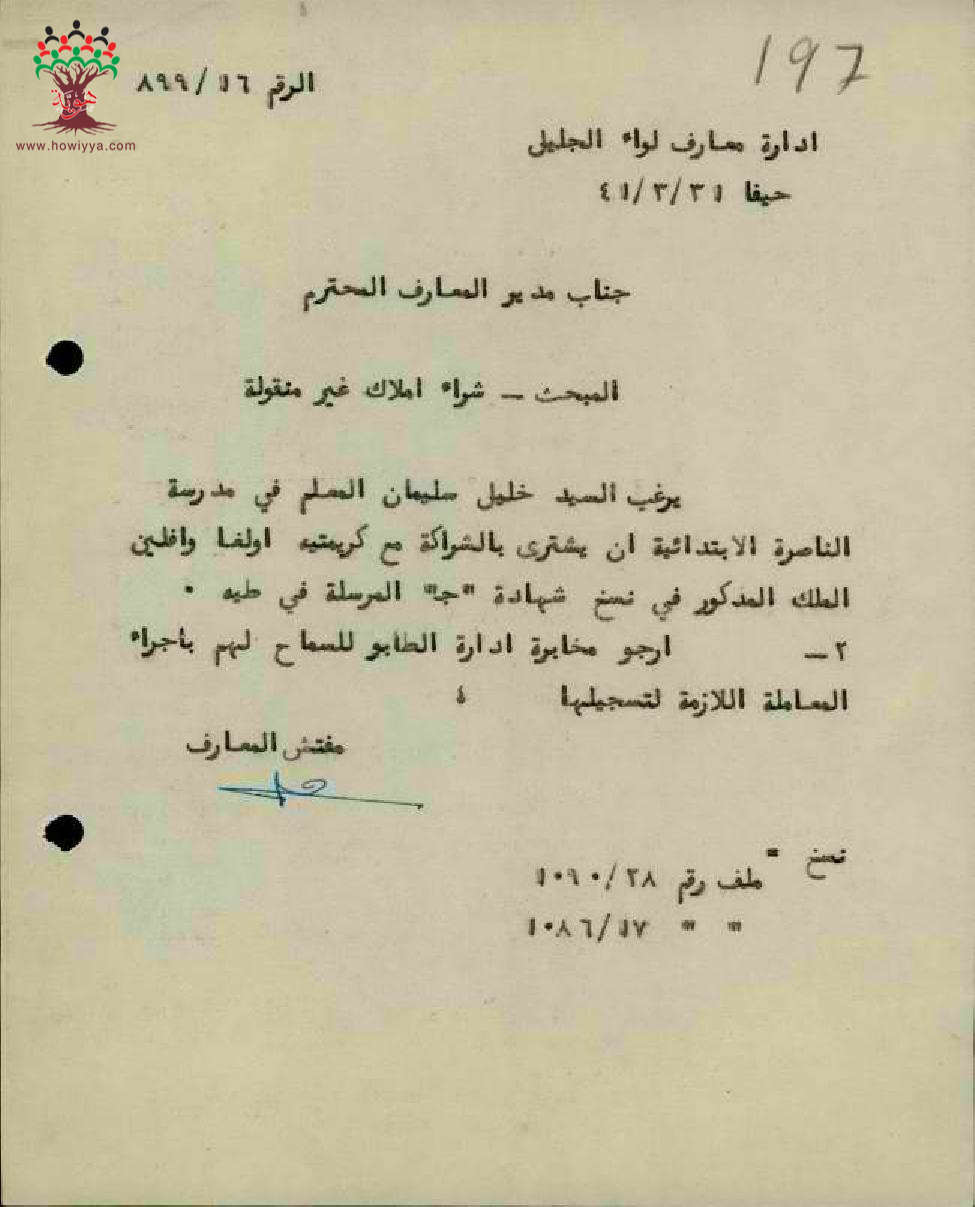 197
الرقم ٨٩٩/١٦
www.howiyya.com
ادارة معارف لواء الجليل
حيفا ٤١/٣/٣١
جناب مدير المعارف المحترم
المبحث ــ شراء املاك غير منقولة
يرغب السيد خليل سليمان المعلم في مدرسة
الناصرة الابتدائية ان يشترى بالشراكة مع كريمتيه اولغا وافلين
الملك المذكور في نسخ شهادة "ج" المرسلة في طيه ٠
٢ــ ارجو مخابرة ادارة الطابو للسماح لهم بأجراء
المعاملة اللازمة لتسجيلها
مفتش المعارف
نسخ =
ملف رقم ١٠٩٠/٢٨
" " ١٠٨٦/١٧